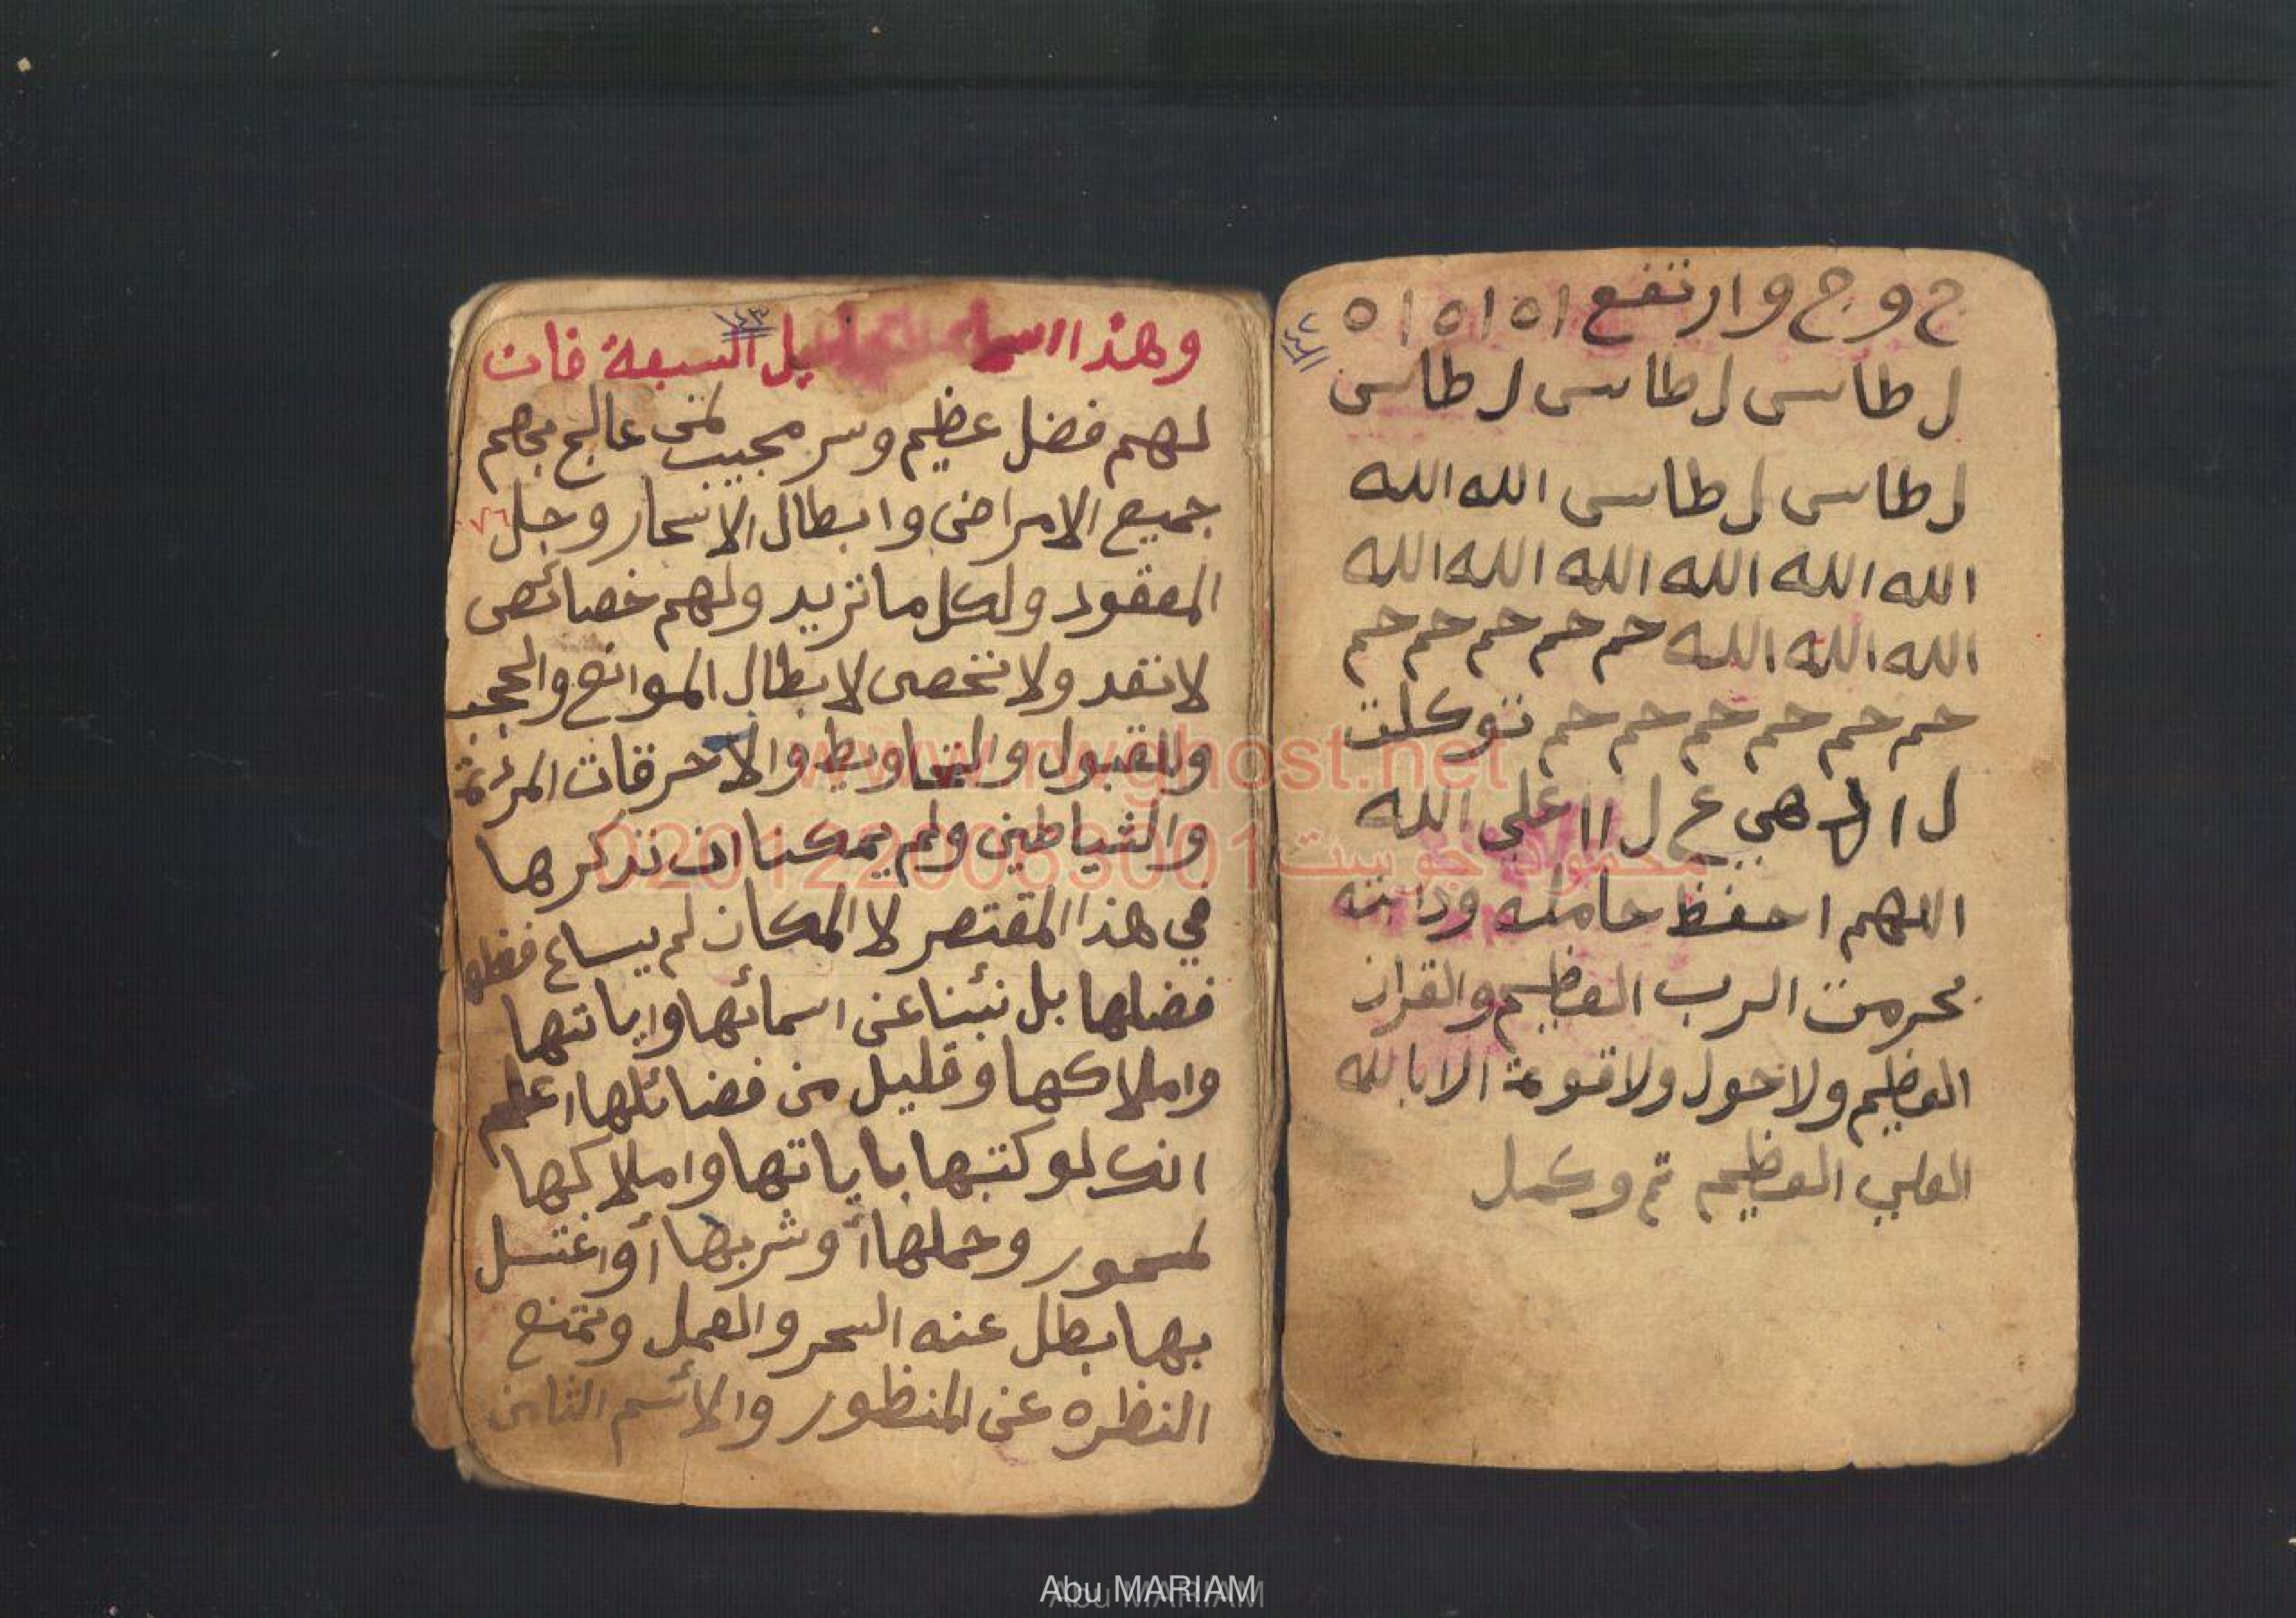 ج و ج وارتفع ١٥١٥١٥
ل طاسى ل طاسى ل طاسى
ل طاسى ل طاسى الله الله
الله الله الله الله الله الله
الله الله الله حم حم حم حم حم
حم حم حم حم حم حم توكلت
ل ا هي ع ل ا ا على الله
اللهم احفظ حامله
بحرمت الرب العظيم والقران
العظيم ولا حول ولا قوة الا بالله
العلي العظيم تم وكمل
وهذا السبعة فان
لهم فضل عظيم وسر مجيب لمن عالج بهم
جميع الامراض وابطال الاسحار وحل
٧٦
المعقود ولكل ما تريد ولهم خصائص
لا تعد ولا تحصى لابطال الموانع والحجب
وللقبول والاحرقات
والشياطين ولم يمكنا ان نذكرها
في هذا المقتصر لا المكان لم يساع
فضلها بل نبئنا عن اسمائها واياتها
واملاكها وقليل من فضائلها اعلم
انك لو كتبها باياتها واملاكها
لمسحور وحملها أو شربها أو اغتسل
بها بطل عنه السحر والعمل وتمنع
النظره عن المنظور والأسم الثامن
www.rwghost.net
محمود جوست 0201220063001
Abu MARIAM